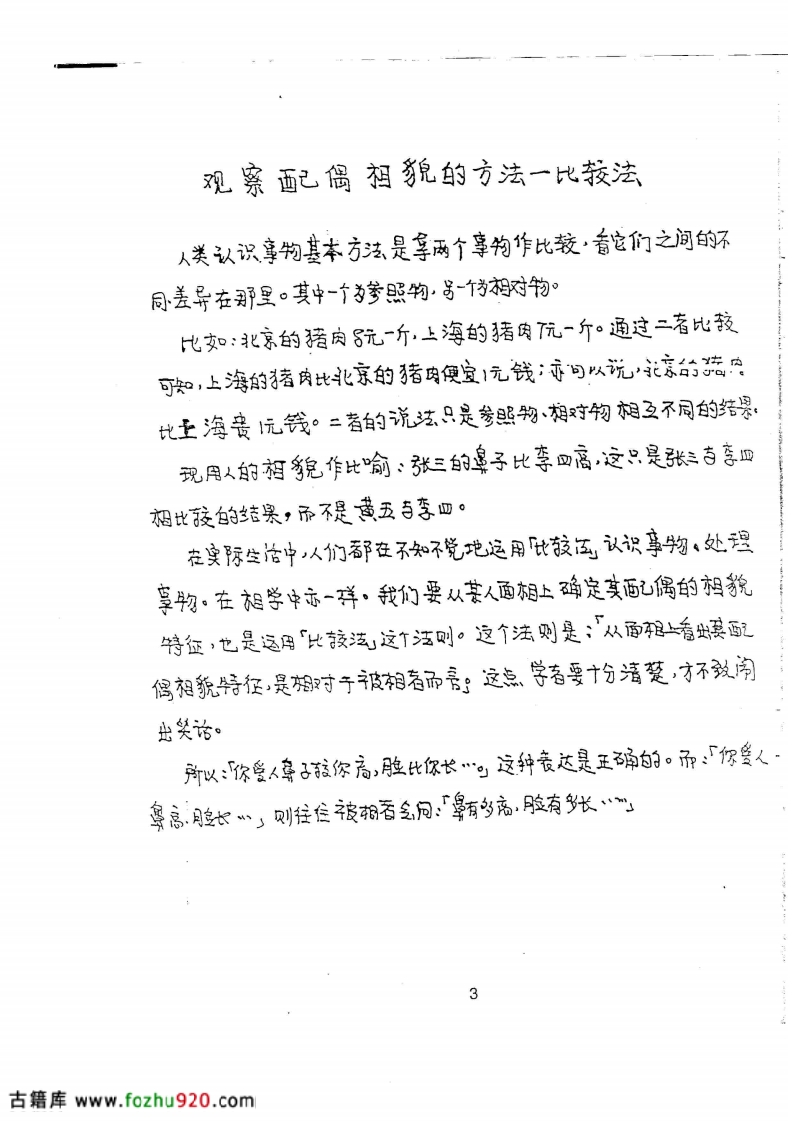 观察配偶相貌的方法—比较法
人类认识事物基本方法是拿两个事物作比较，看它们之间的不
同差异在那里。其中一个为参照物，另一个为相对物。
比如：北京的猪肉8元一斤，上海的猪肉7元一斤。通过二者比较
可知，上海的猪肉比北京的猪肉便宜1元钱；亦可以说，北京的猪肉
比上海贵1元钱。二者的说法只是参照物、相对物相互不同的结果。
现用人的相貌作比喻：张三的鼻子比李四高，这只是张三与李四
相比较的结果，而不是黄五与李四。
在实际生活中，人们都在不知不觉地运用「比较法」认识事物、处理
事物。在相学中亦一样。我们要从某人面相上确定其配偶的相貌
特征，也是运用「比较法」这个法则。这个法则是：「从面相上看出其配
偶相貌特征，是相对于被相者而言」。这点学者要十分清楚，才不致闹
出笑话。
所以：「你爱人鼻子较你高，脸比你长…。」这种表达是正确的。而：「你爱人
鼻高、脸长…」则往往被相者会问：「鼻有多高，脸有多长……」
3
古籍库 www.fozhu920.com